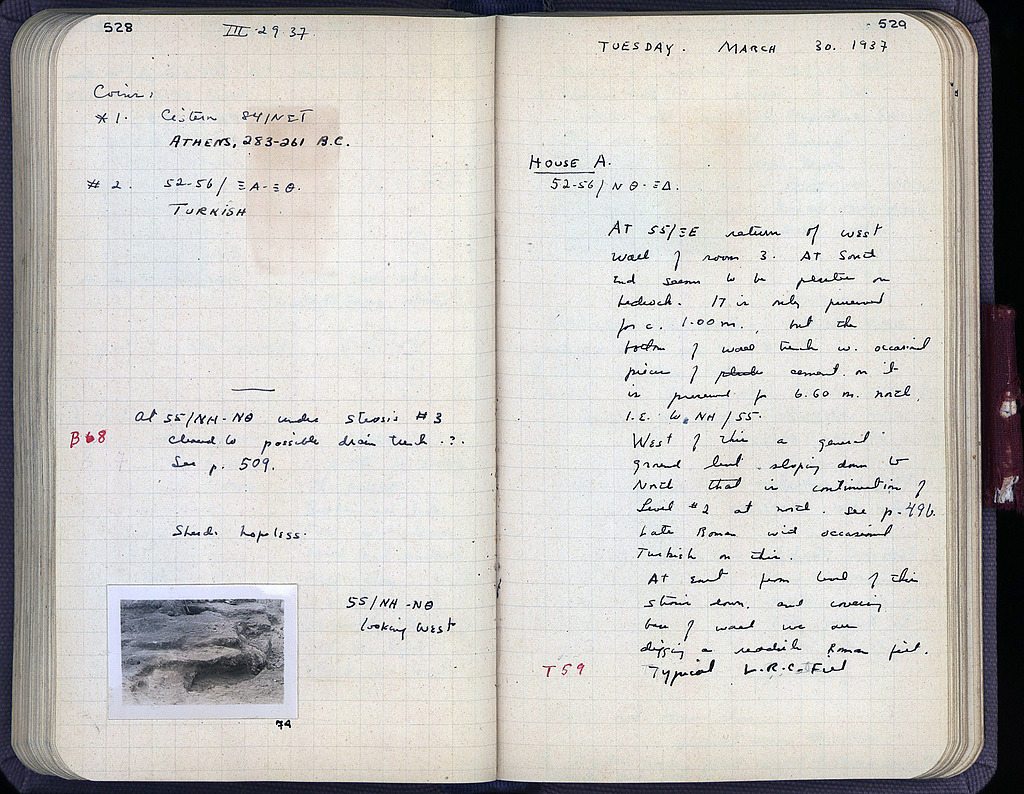 528
III·29·37.
Coins:
#1. Cistern 84/NET
ATHENS, 283-261 B.C.
#2. 52-56/ΞA-ΞΘ.
TURKISH
At 55/NH-NΘ under Stosis #3
B68
cleared to possible drain trench .?.
See p. 509.
Sherds hopeless.
55/NH-NΘ
looking West
74
529
TUESDAY. MARCH 30. 1937
HOUSE A.
52-56/NΘ-ΞΔ.
At 55/ΞE return of west
wall of room 3. At South
End seems to be plaster on
bedrock. It is only preserved
for c. 1.00 m., but the
bottom of wall trench w. occasional
pieces of cement on it
is preserved for 6.60 m. north,
I.E. to NH/55.
West of this a general
ground level sloping down to
North that is continuation of
Level #2 at north. See p. 496.
Late Roman with occasional
Turkish on this.
At East from level of this
strosis down, and covering
base of wall we are
digging a reddish Roman fill.
T59
Typical L.R.C. Fill